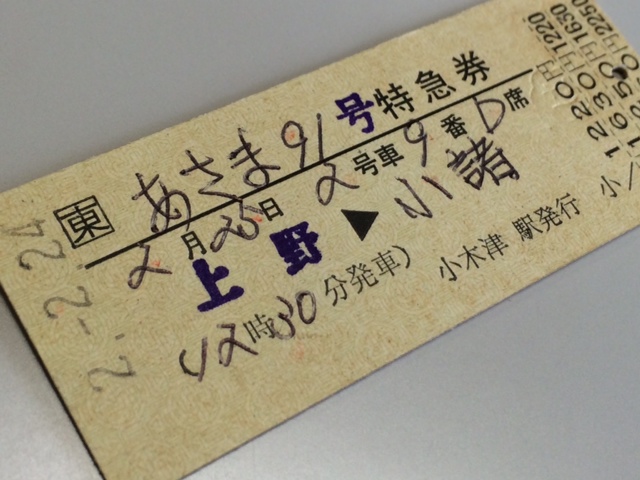 東 あさま91号特急券
2月25日 2号車9番D席
上野▶小諸
(12時30分発車)
小木津駅発行
2.-2.24
1220円
1630円
2250